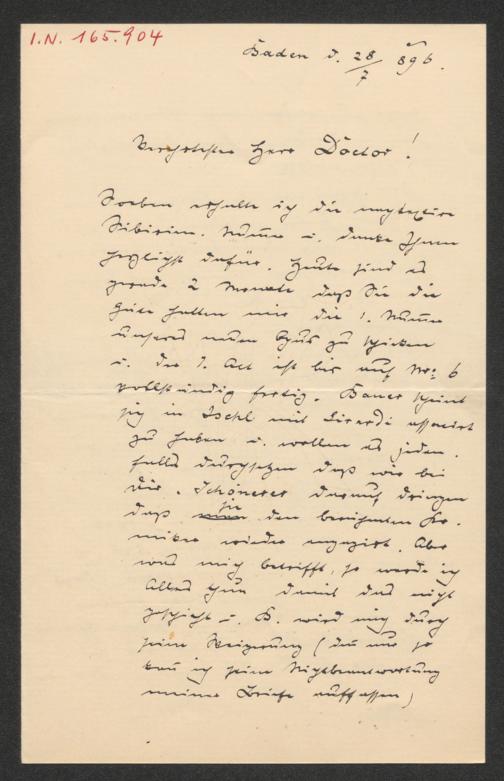 I.N. 165.904
Baden d. 28/7 896.
Verehrtester Herr Doctor!
Soeben erhalte ich die
Nu̅me u. danke Ihnen
herzlichst dafür. Heute sind es
gerade 2 Monate daß Sie die
Güte hatten mir die 1. Nu̅mer
unseres neuen Opus zu schicken
u. der I. Act ist bis auf No: 6
vollständig fertig. Bauer scheint
sich in Ischl mit Girardi associrt
zu haben u. wollen es jeden-
falls durchsetzen daß wir bei
Dir. Schönerer darauf dringen
daß sie den berühmten Ko-
miker wieder engagirt. Aber
was mich betrifft, so werde ich
Alles thun damit das nicht
geschieht u. B. wird mich durch
seine Weigerung (denn nur so
kan̅ ich seine Nichtbeantwortung
meiner Briefe auffassen)